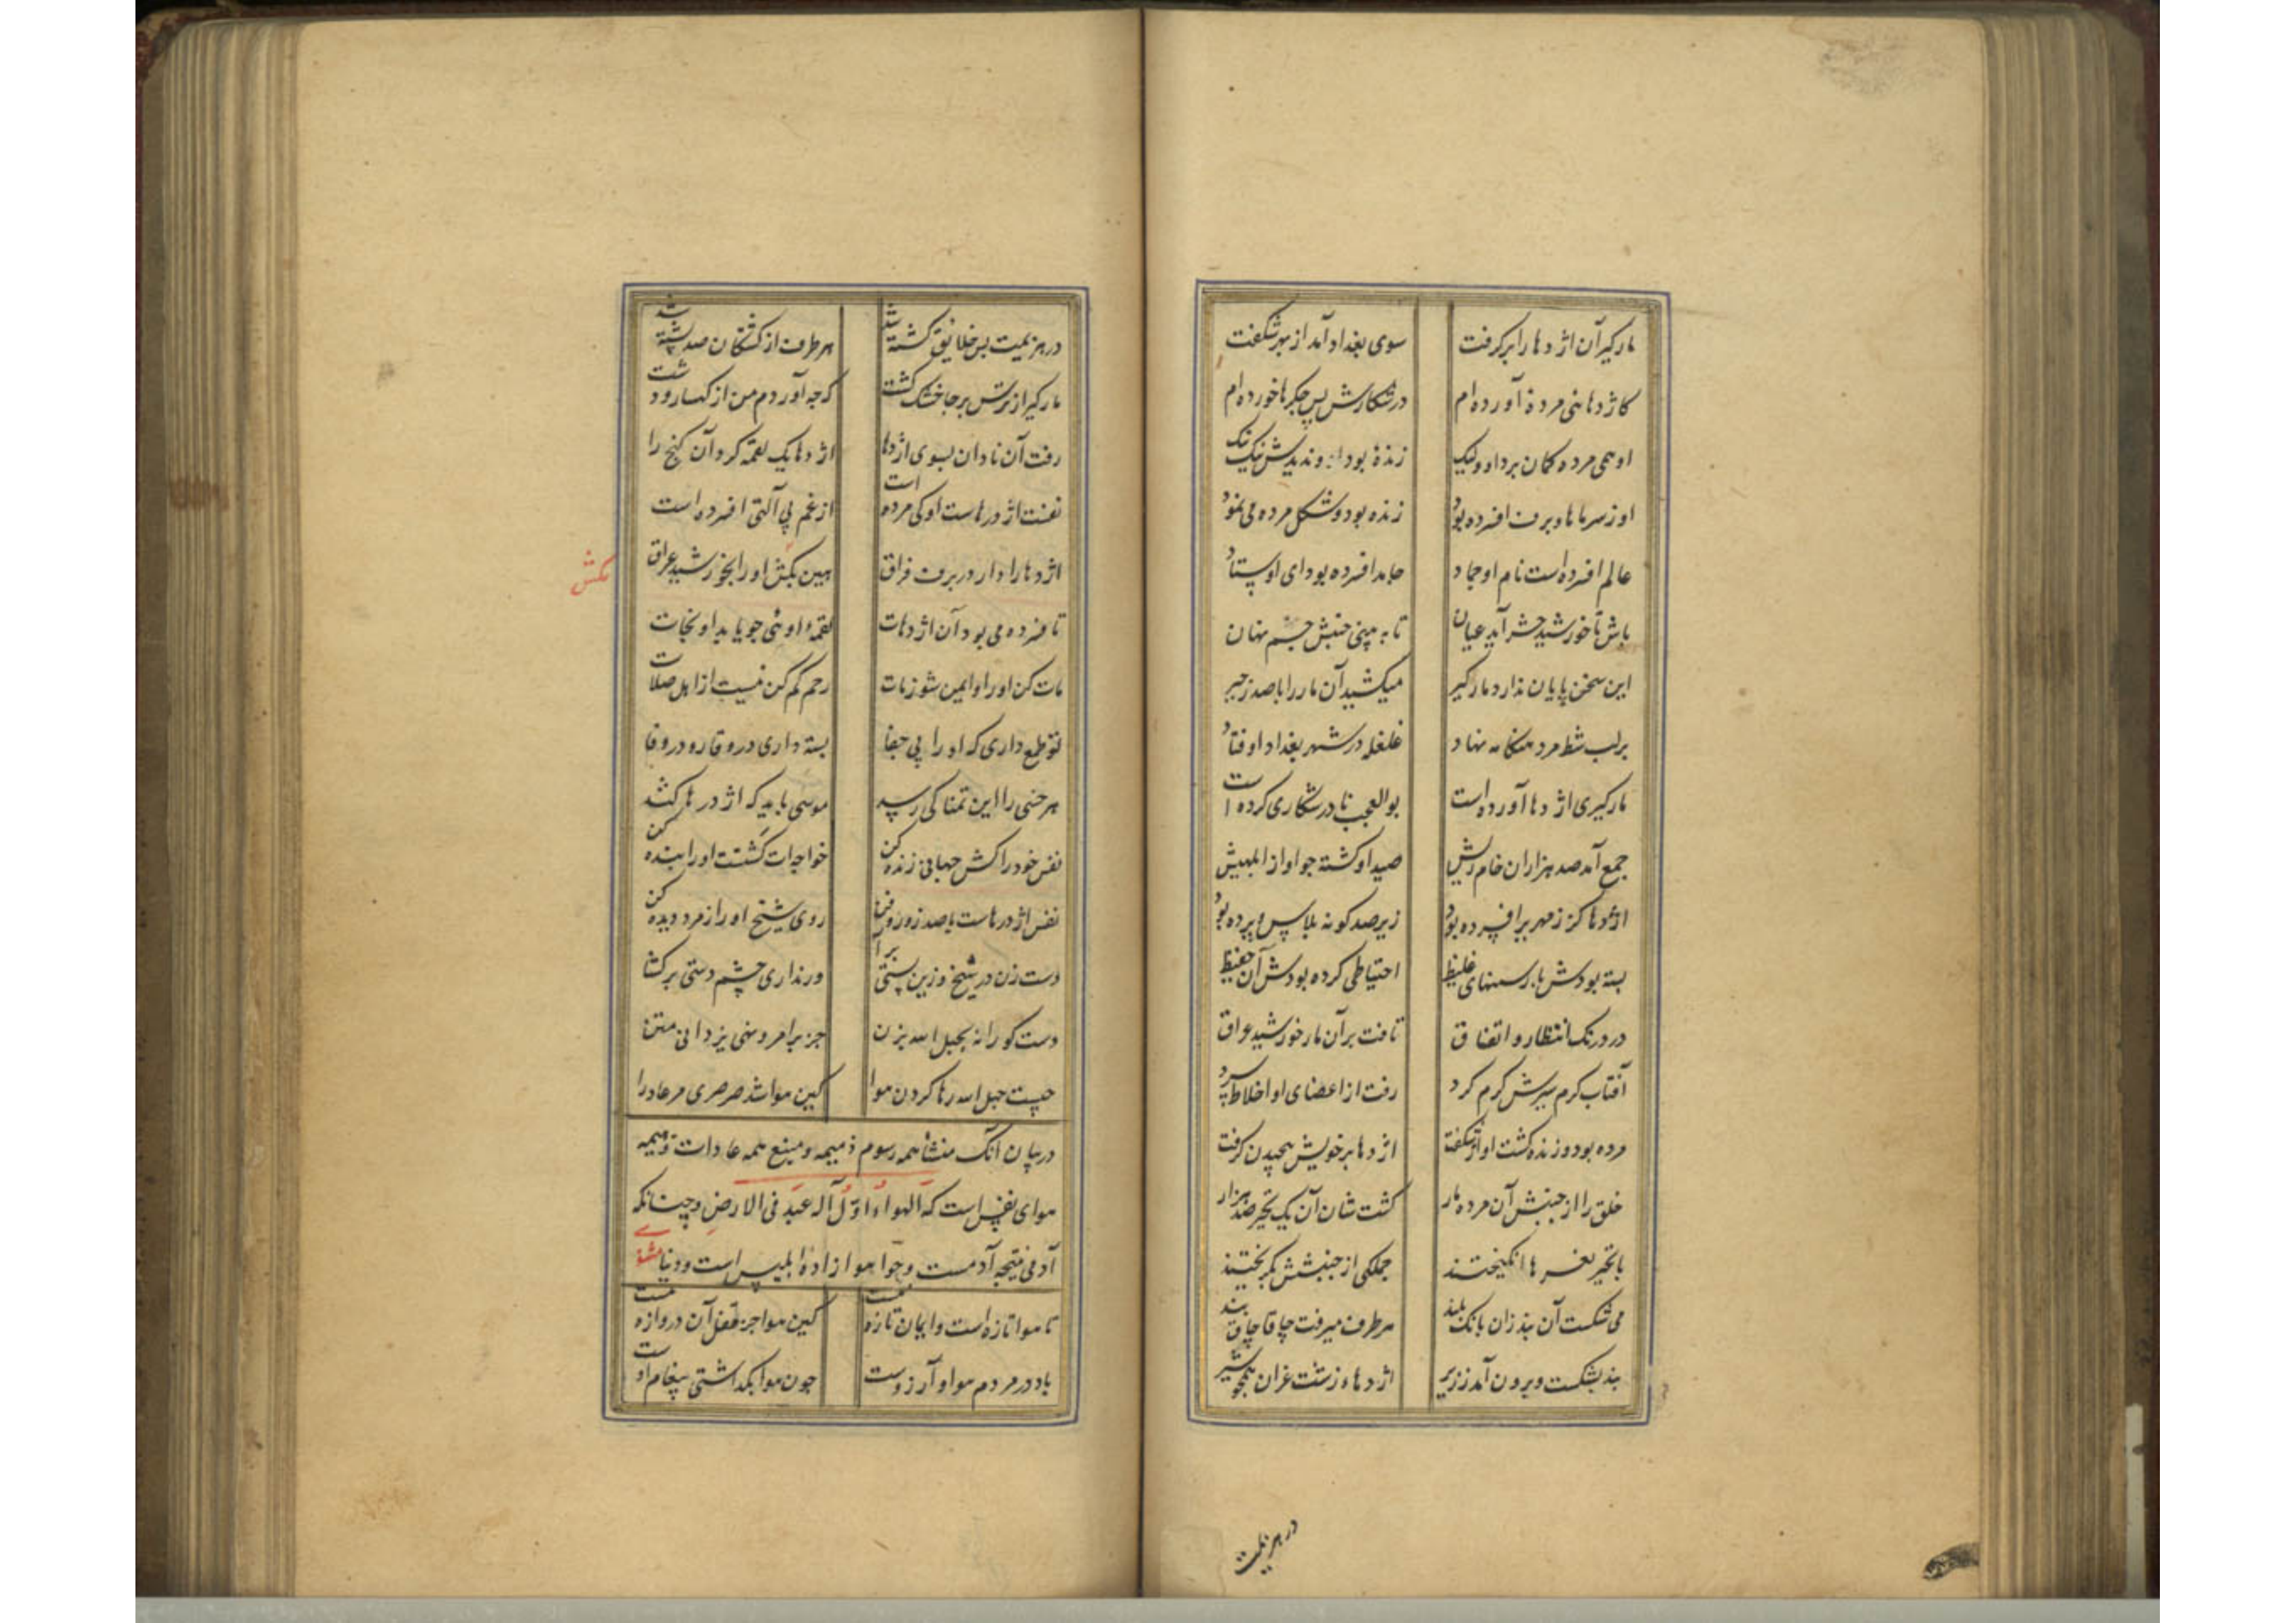 مارگیر آن اژدها را برگرفت سوی بغداد آمد از بهر شگفت
کاژدهائی مردهٔ آورده‌ام در شکارش بس جگرها خورده‌ام
او همی مرده گمان برد او ولیک زندهٔ بود او ندیدش نیک نیک
او ز سرماها و برف افسرده بود زنده بود و شکل مرده می‌نمود
عالم افسرده است نام او جماد جامد افسرده بود ای اوستاد
باش تا خورشید حشر آید عیان تا به بینی جنبش جسم جهان
این سخن پایان ندارد مارگیر میکشید آن مار را با صد زحیر
بر لب شط مرد هنگامه نهاد غلغله در شهر بغداد اوفتاد
مارگیری اژدها آورده است بوالعجب نادر شکاری کرده است
جمع آمد صد هزاران خام ریش صید او گشته چو او از ابلهیش
اژدها کز زمهریر افسرده بود زیر صد گونه پلاس و پرده بود
بسته بودش با رسنهای غلیظ احتیاطی کرده بودش آن حفیظ
در درنگ انتظار و اتفاق تافت بر آن مار خورشید عراق
آفتاب گرم سیرش گرم کرد رفت از اعضای او اخلاط سرد
مرده بود و زنده گشت او از شگفت اژدها بر خویش پیچیدن گرفت
خلق را از جنبش آن مرده مار گشت شان آن یک تحیر صد هزار
با تحیر نعرها انگیختند جملگی از جنبشش بگریختند
می شکست آن بند زان بانگ بلند هر طرف میرفت چاقاچاق بند
بند بشکست و برون آمد ز زیر اژدهاء زشت غران همچو شیر
در هزیمت
در هزیمت بس خلایق کشته شد هر طرف از کشتگان صد پشته شد
مارگیر از ترس بر جا خشک گشت که چه آوردم من از کهسار و دشت
رفت آن نادان بسوی اژدها اژدها یک لقمه کرد آن گیج را
نفست اژدرهاست او کی مرده است از غم بی آلتی افسرده است
اژدها را دار در برف فراق هین بکش او را بخورشید عراق
مکش
تا فسرده می بود آن اژدهات لقمهٔ اوئی چو یابد او نجات
مات کن او را و ایمن شو ز مات رحم کم کن نیست از اهل صلات
تو طمع داری که او را بی جفا بسته داری در وقار و در وفا
هر خسی را این تمنا کی رسد موسی باید که اژدرها کشد
نفس خود را کش جهانی زنده کن خواجه‌ات کشتت او را بنده کن
نفس اژدرهاست با صد زور و فن روی شیخ او را زمرد دیده کن
دست زن در شیخ و زین سستی برآ ور نداری چشم دستی برگشا
دست کورانه بحبل الله بزن جز بر امر و نهی یزدانی متن
چیست حبل الله رها کردن هوا کین هوا شد صرصری مر عاد را
در بیان آنک منشأ همه رسوم ذمیمه و منبع همه عادات قبیحه
هوای نفس است که الهواء اوّل اله عبد فی الارض و چنانکه
آدمی نتیجه آدمست و حوا هوا زادهٔ ابلیس است و دنیا مثنوی
تا هوا تازه است و ایمان تازه نیست کین هوا جز قفل آن دروازه نیست
باد در مردم هوا و آرزوست چون هوا بگذاشتی پیغام اوست